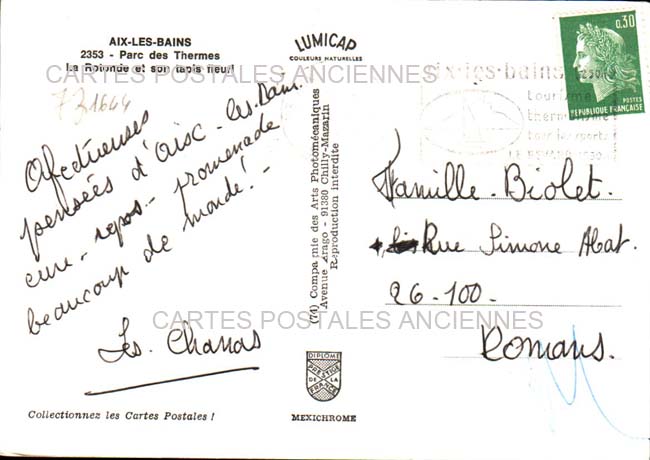 AIX-LES-BAINS
2353 - Parc des Thermes
La Rotonde et son tapis fleuri
LUMICAP
COULEURS NATURELLES
0,30
POSTES
REPUBLIQUE FRANÇAISE
CARTES POSTALES ANCIENNES
731644
aix-les-bains
tourisme
thermalisme
tous les sports
Afectueuses
pensées d'Aix-les-Bains.
cure - repos - promenade
beaucoup de monde! -
Les Chanas
(74) Compagnie des Arts Photomécaniques
Avenue Arago - 91380 Chilly-Mazarin
Reproduction Interdite
Famille Biolet.
Rue Simone Abat.
26-100-
Romans.
CARTES POSTALES ANCIENNES
DIPLOME
PRESTIGE
DE LA
FRANCE
MEXICHROME
Collectionnez les Cartes Postales !